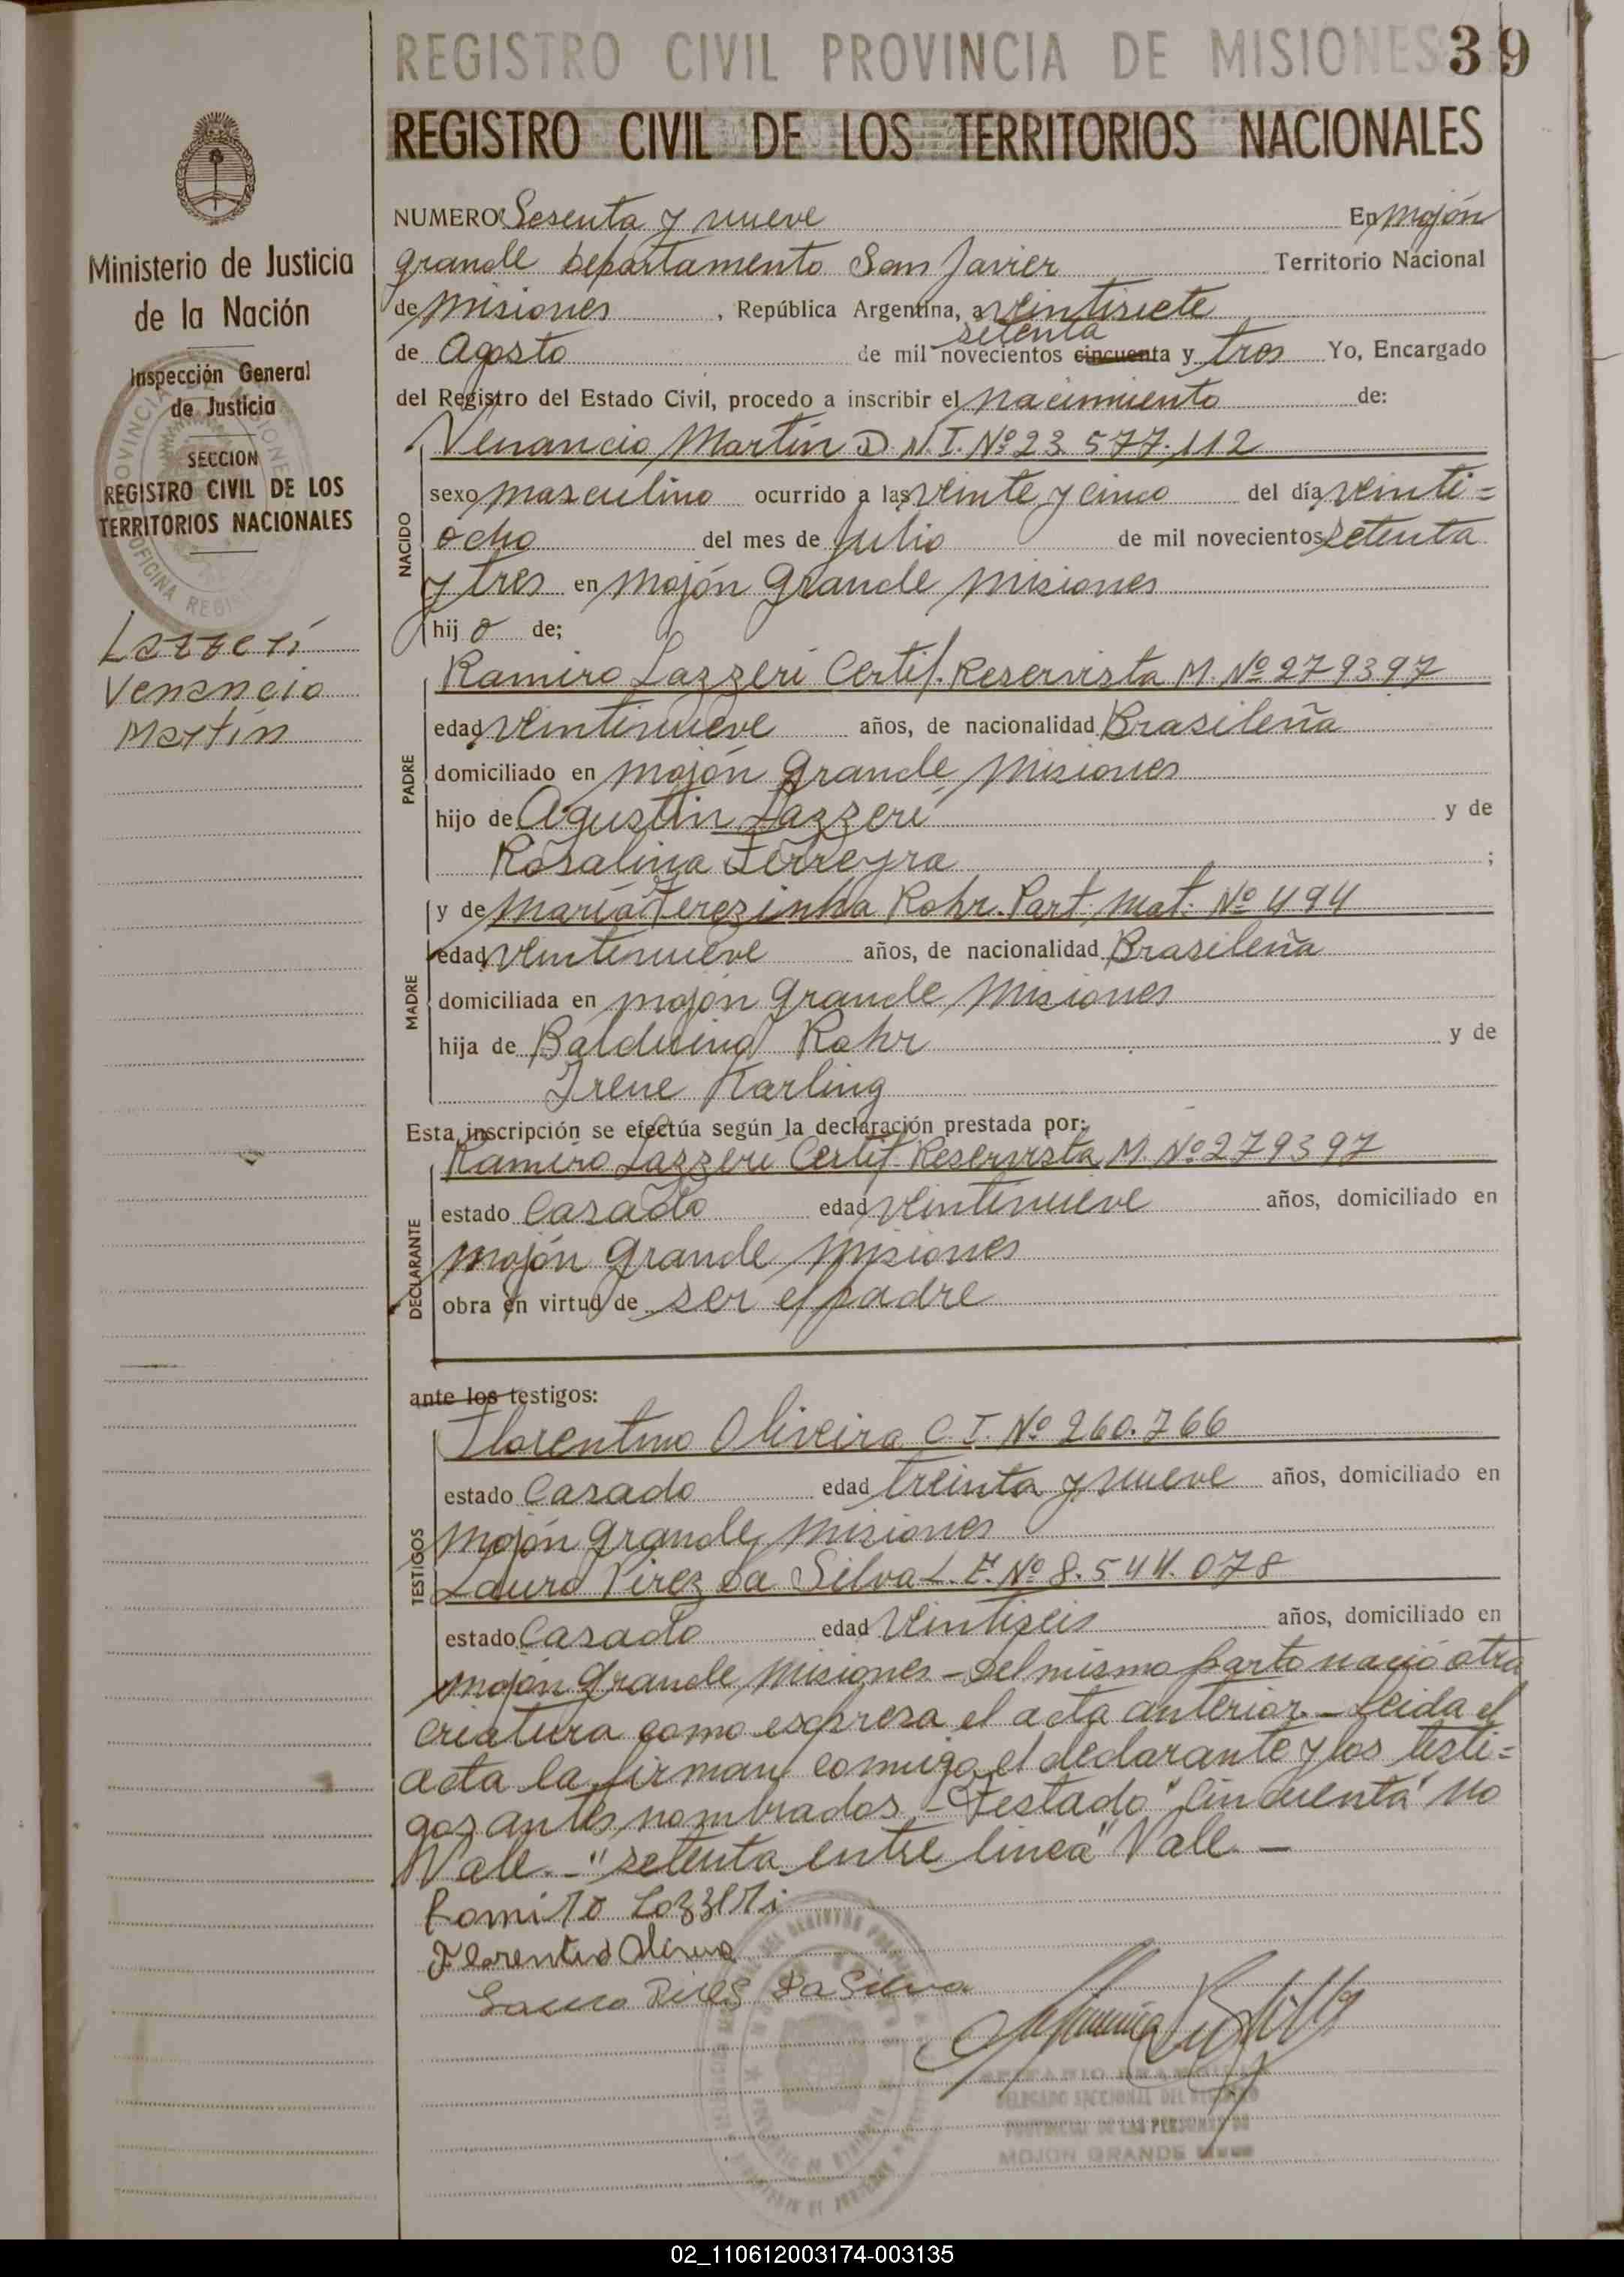 REGISTRO CIVIL PROVINCIA DE MISIONES 39
REGISTRO CIVIL DE LOS TERRITORIOS NACIONALES
Ministerio de Justicia
de la Nación
Inspección General
de Justicia
SECCION
REGISTRO CIVIL DE LOS
TERRITORIOS NACIONALES
Lazzeri
Venancio
Martín
NUMERO Sesenta y nueve En Mojón
grande Departamento San Javier Territorio Nacional
de Misiones, República Argentina, a veintisiete
setenta
de Agosto de mil novecientos cincuenta y tres Yo, Encargado
del Registro del Estado Civil, procedo a inscribir el nacimiento de:
Venancio Martín D.N.I. Nº 23.577.112
NACIDO
sexo masculino ocurrido a las veinte y cinco del día veinti=
ocho del mes de Julio de mil novecientos setenta
y tres en Mojón grande Misiones
hijo de;
Ramiro Lazzeri Certif. Reservista M. Nº 279397
PADRE
edad veintinueve años, de nacionalidad Brasileña
domiciliado en mojón grande Misiones
hijo de Agustin Lazzeri y de
Rosalina Ferreyra ;
y de María Terezinha Rohr. Part. Mat. Nº 494
MADRE
edad veintinueve años, de nacionalidad Brasileña
domiciliada en mojón grande Misiones
hija de Balduino Rohr y de
Irene Karling
Esta inscripción se efectúa según la declaración prestada por:
Ramiro Lazzeri Certif. Reservista M. Nº 279397
DECLARANTE
estado Casado edad veintinueve años, domiciliado en
mojón grande Misiones
obra en virtud de ser el padre
ante los testigos:
Florentino Oliveira C.I. Nº 260.766
TESTIGOS
estado Casado edad treinta y nueve años, domiciliado en
Mojón grande, Misiones
Lauro Pirez Da Silva L.E. Nº 8.544.078
estado Casado edad Veintiseis años, domiciliado en
mojón grande Misiones - Del mismo parto nació otra
criatura como expresa el acta anterior - Leida el
acta la firman conmigo el declarante y los testi=
gos antes nombrados - Testado "Cincuenta" no
Vale. - "setenta entre linea" Vale. -
Romiro Lozzeri
Lauro Pires Da Silva
DELEGADO SECCIONAL DEL REGISTRO
PROVINCIAL DE LAS PERSONAS DE
MOJON GRANDE
02_110612003174-003135